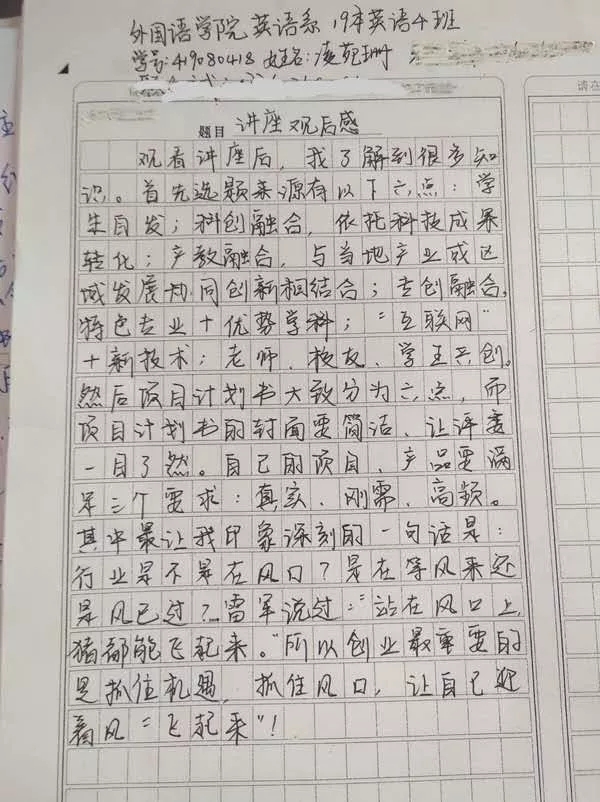 外国语学院 英语系 19本英语4班
学号:419080418 姓名:凌苑珊
题目 讲座观后感
观看讲座后，我了解到很多知
识。首先选题来源有以下六点：学
生自发；科创融合，依托科技成果
转化；产教融合，与当地产业或区
域发展协同创新相结合；专创融合，
特色专业+优势学科；“互联网”
+新技术；老师、校友、学生共创。
然后项目计划书大致分为六点，而
项目计划书的封面要简洁、让评委
一目了然。自己的项目、产品要满
足三个要求：真实、刚需、高频。
其中最让我印象深刻的一句话是：
行业是不是在风口？是在等风来还
是风已过？雷军说过：“站在风口上，
猪都能飞起来。”所以创业最重要的
是抓住机遇，抓住风口，让自己迎
着风“飞起来”！
请在